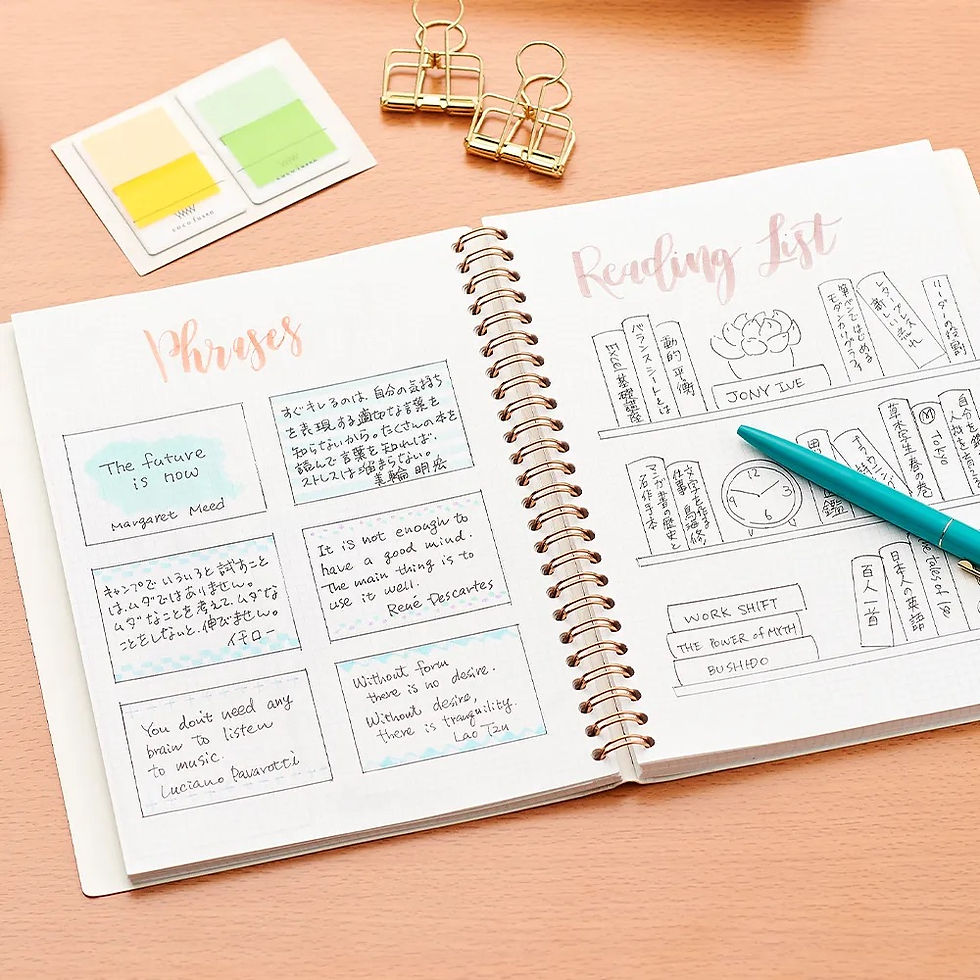 Phrases
The future
is now
Margaret Meed
すぐキレるのは、自分の気持ち
を表現する適切な言葉を
知らないから。たくさんの本を
読んで言葉を知れば、
ストレスは溜まらない。
美輪 明宏
キャンプでいろいろと試すこと
は、ムダではありません。
ムダなことを考えて、ムダな
ことをしないと、伸びません。
イチロー
It is not enough to
have a good mind.
The main thing is to
use it well.
René Descartes
You don't need any
brain to listen
to music.
Luciano Pavarotti
Without form
there is no desire.
Without desire,
there is tranquility.
Lao Tzu
Reading List
Excel 基礎講座
バランスシートとは
動的平衡
JONY IVE
筆ペンではじめる
モダンカリグラフィ
レタープレス
新しい流れ
リーダーの役割
マンガ 書の歴史と
名作手本
文字を作る
仕事 鳥海修
12
3
6
9
図鑑
草木芽生 春の巻
TOKYO
WORK SHIFT
THE POWER of MYTH
BUSHIDO
百人一首
日本人の英語
the Tales of